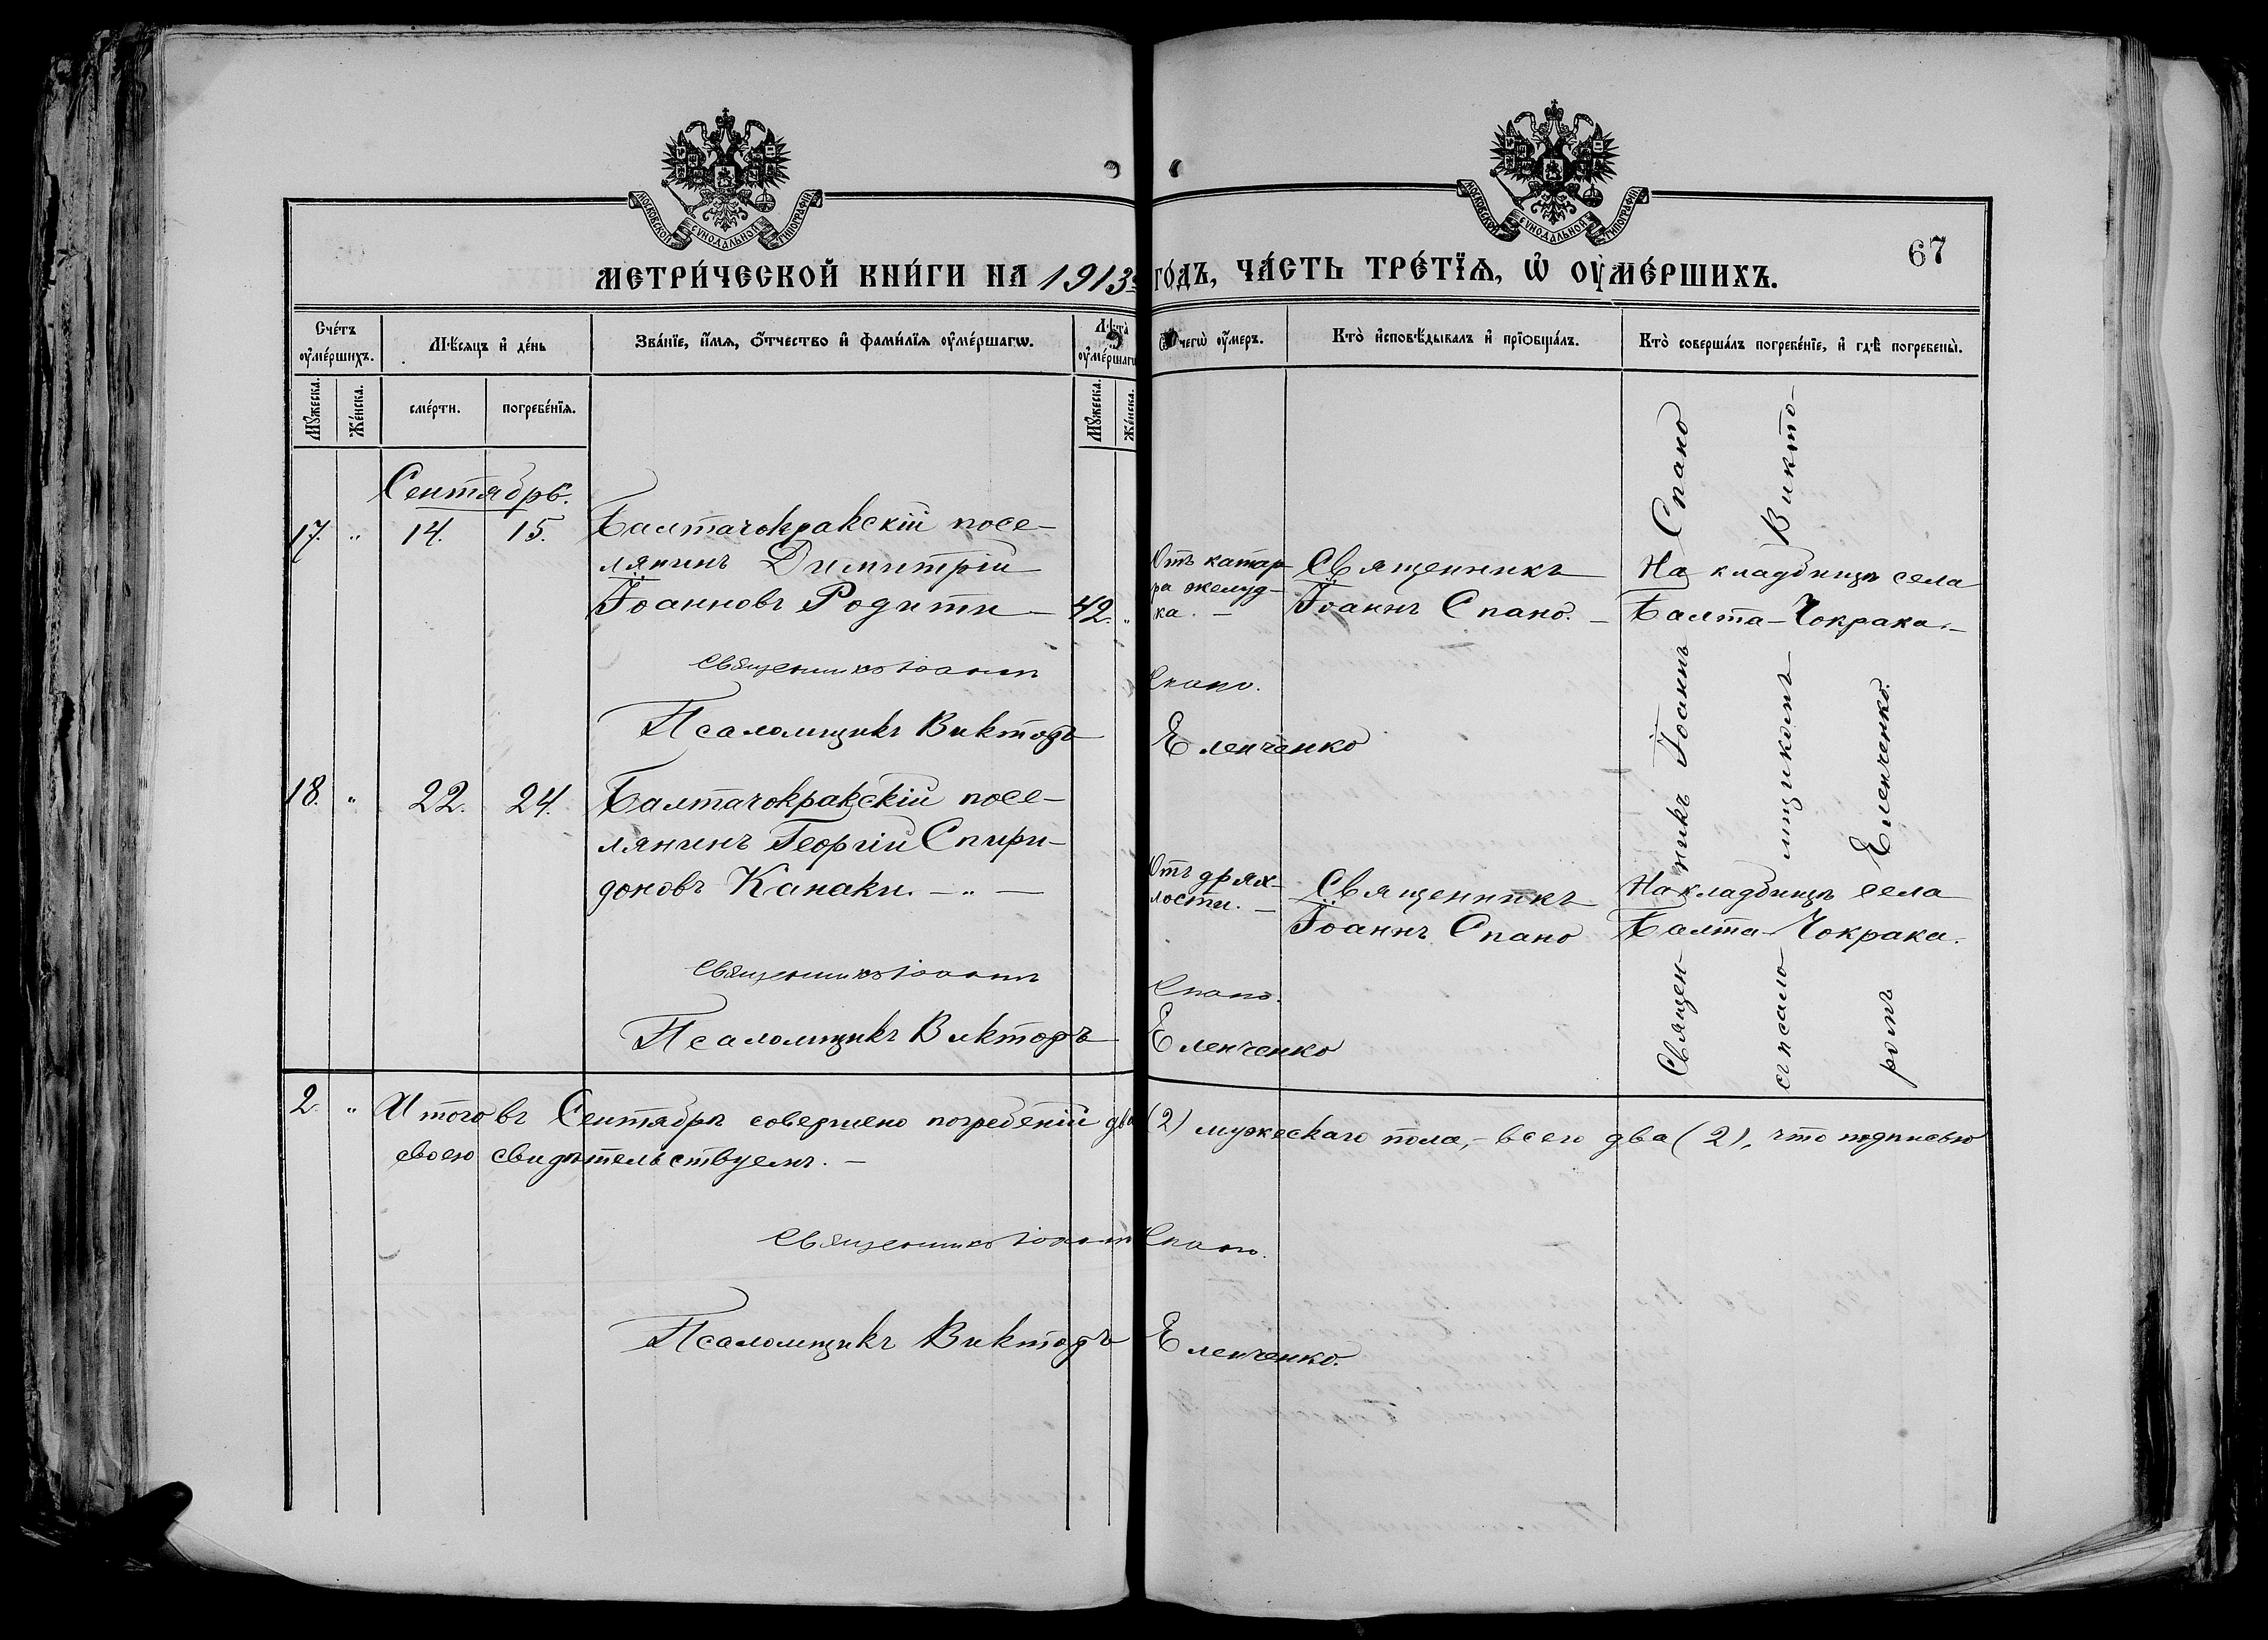 МОСКОВСКОЙ СУНОДАЛЬНОЙ ТИПОГРАФІИ
МОСКОВСКОЙ СУНОДАЛЬНОЙ ТИПОГРАФІИ
67
МЕТРИ́ЧЕСКОЙ КНИ́ГИ НА 1913 ГО́ДЪ, ЧА́СТЬ ТРЕ́ТЇѦ, Ѡ҆ ОУ҆МЕ́РШИХЪ.
Сче́тъ оу҆ме́ршихъ.
Мꙋ́жеска.
Же́нска.
Мѣ́сяцъ и҆ де́нь
сме́рти.
погребе́нїѧ.
Зва́нїе, и҆́мѧ, ѻ҆́тчество и҆ фами́лїѧ оу҆ме́ршагѡ.
Лѣ́та оу҆ме́ршагѡ
Мꙋ́жеска.
Же́нска.
Ѿ чегѡ̀ оу҆́меръ.
Кто̀ и҆сповѣ́дывалъ и҆ прїѡбща́лъ.
Кто̀ соверша́лъ погребе́нїе, и҆ гдѣ̀ погребены̀.
Сентябрь.
17. " 14. 15. Балтачокракскій посе-
лянинъ Димитрій
Іоанновъ Родити — 42. "
Отъ катар-
ра желуд-
ка. —
Священникъ
Іоаннъ Спано. —
На кладбищѣ села
Балта-Чокрака. —
Священникъ Іоаннъ Спано.
Псаломщикъ Викторъ Еленченко
18. " 22. 24. Балтачокракскій посе-
лянинъ Георгій Спири-
доновъ Канаки. — " —
Отъ дрях-
лости. —
Священникъ
Іоаннъ Спано
На кладбищѣ села
Балта-Чокрака.
Священникъ Іоаннъ Спано.
Псаломщикъ Викторъ Еленченко
Священникъ Іоаннъ Спано
съ псаломщикомъ Викто-
ромъ Еленченко.
2. " Итого въ Сентябрѣ совершено погребеній два (2) мужескаго пола, — всего два (2), что подписью
своею свидѣтельствуемъ. —
Священникъ Іоаннъ Спано.
Псаломщикъ Викторъ Еленченко.